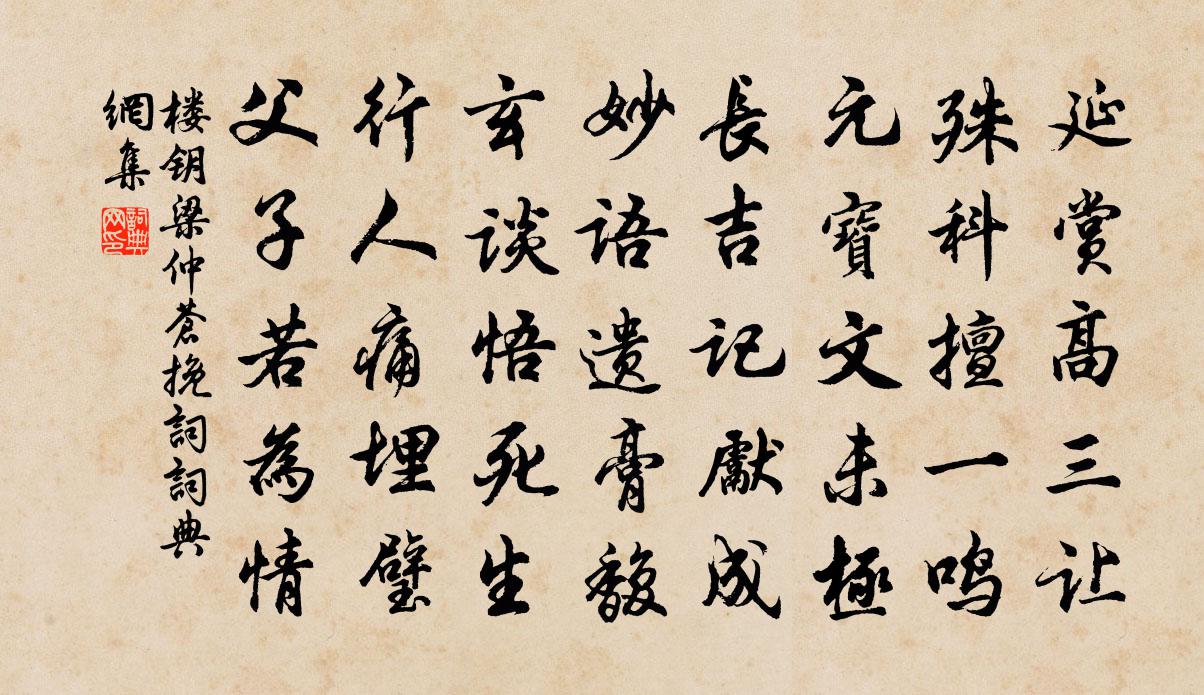 延赏高三让
殊科擅一鸣
元寶文未極
長吉记獻成
妙语遗膏馥
玄谈悟死生
行人痛埋璧
父子若為情
楼钥梁仲蒼挽詞詞典
網集
詞典
网印